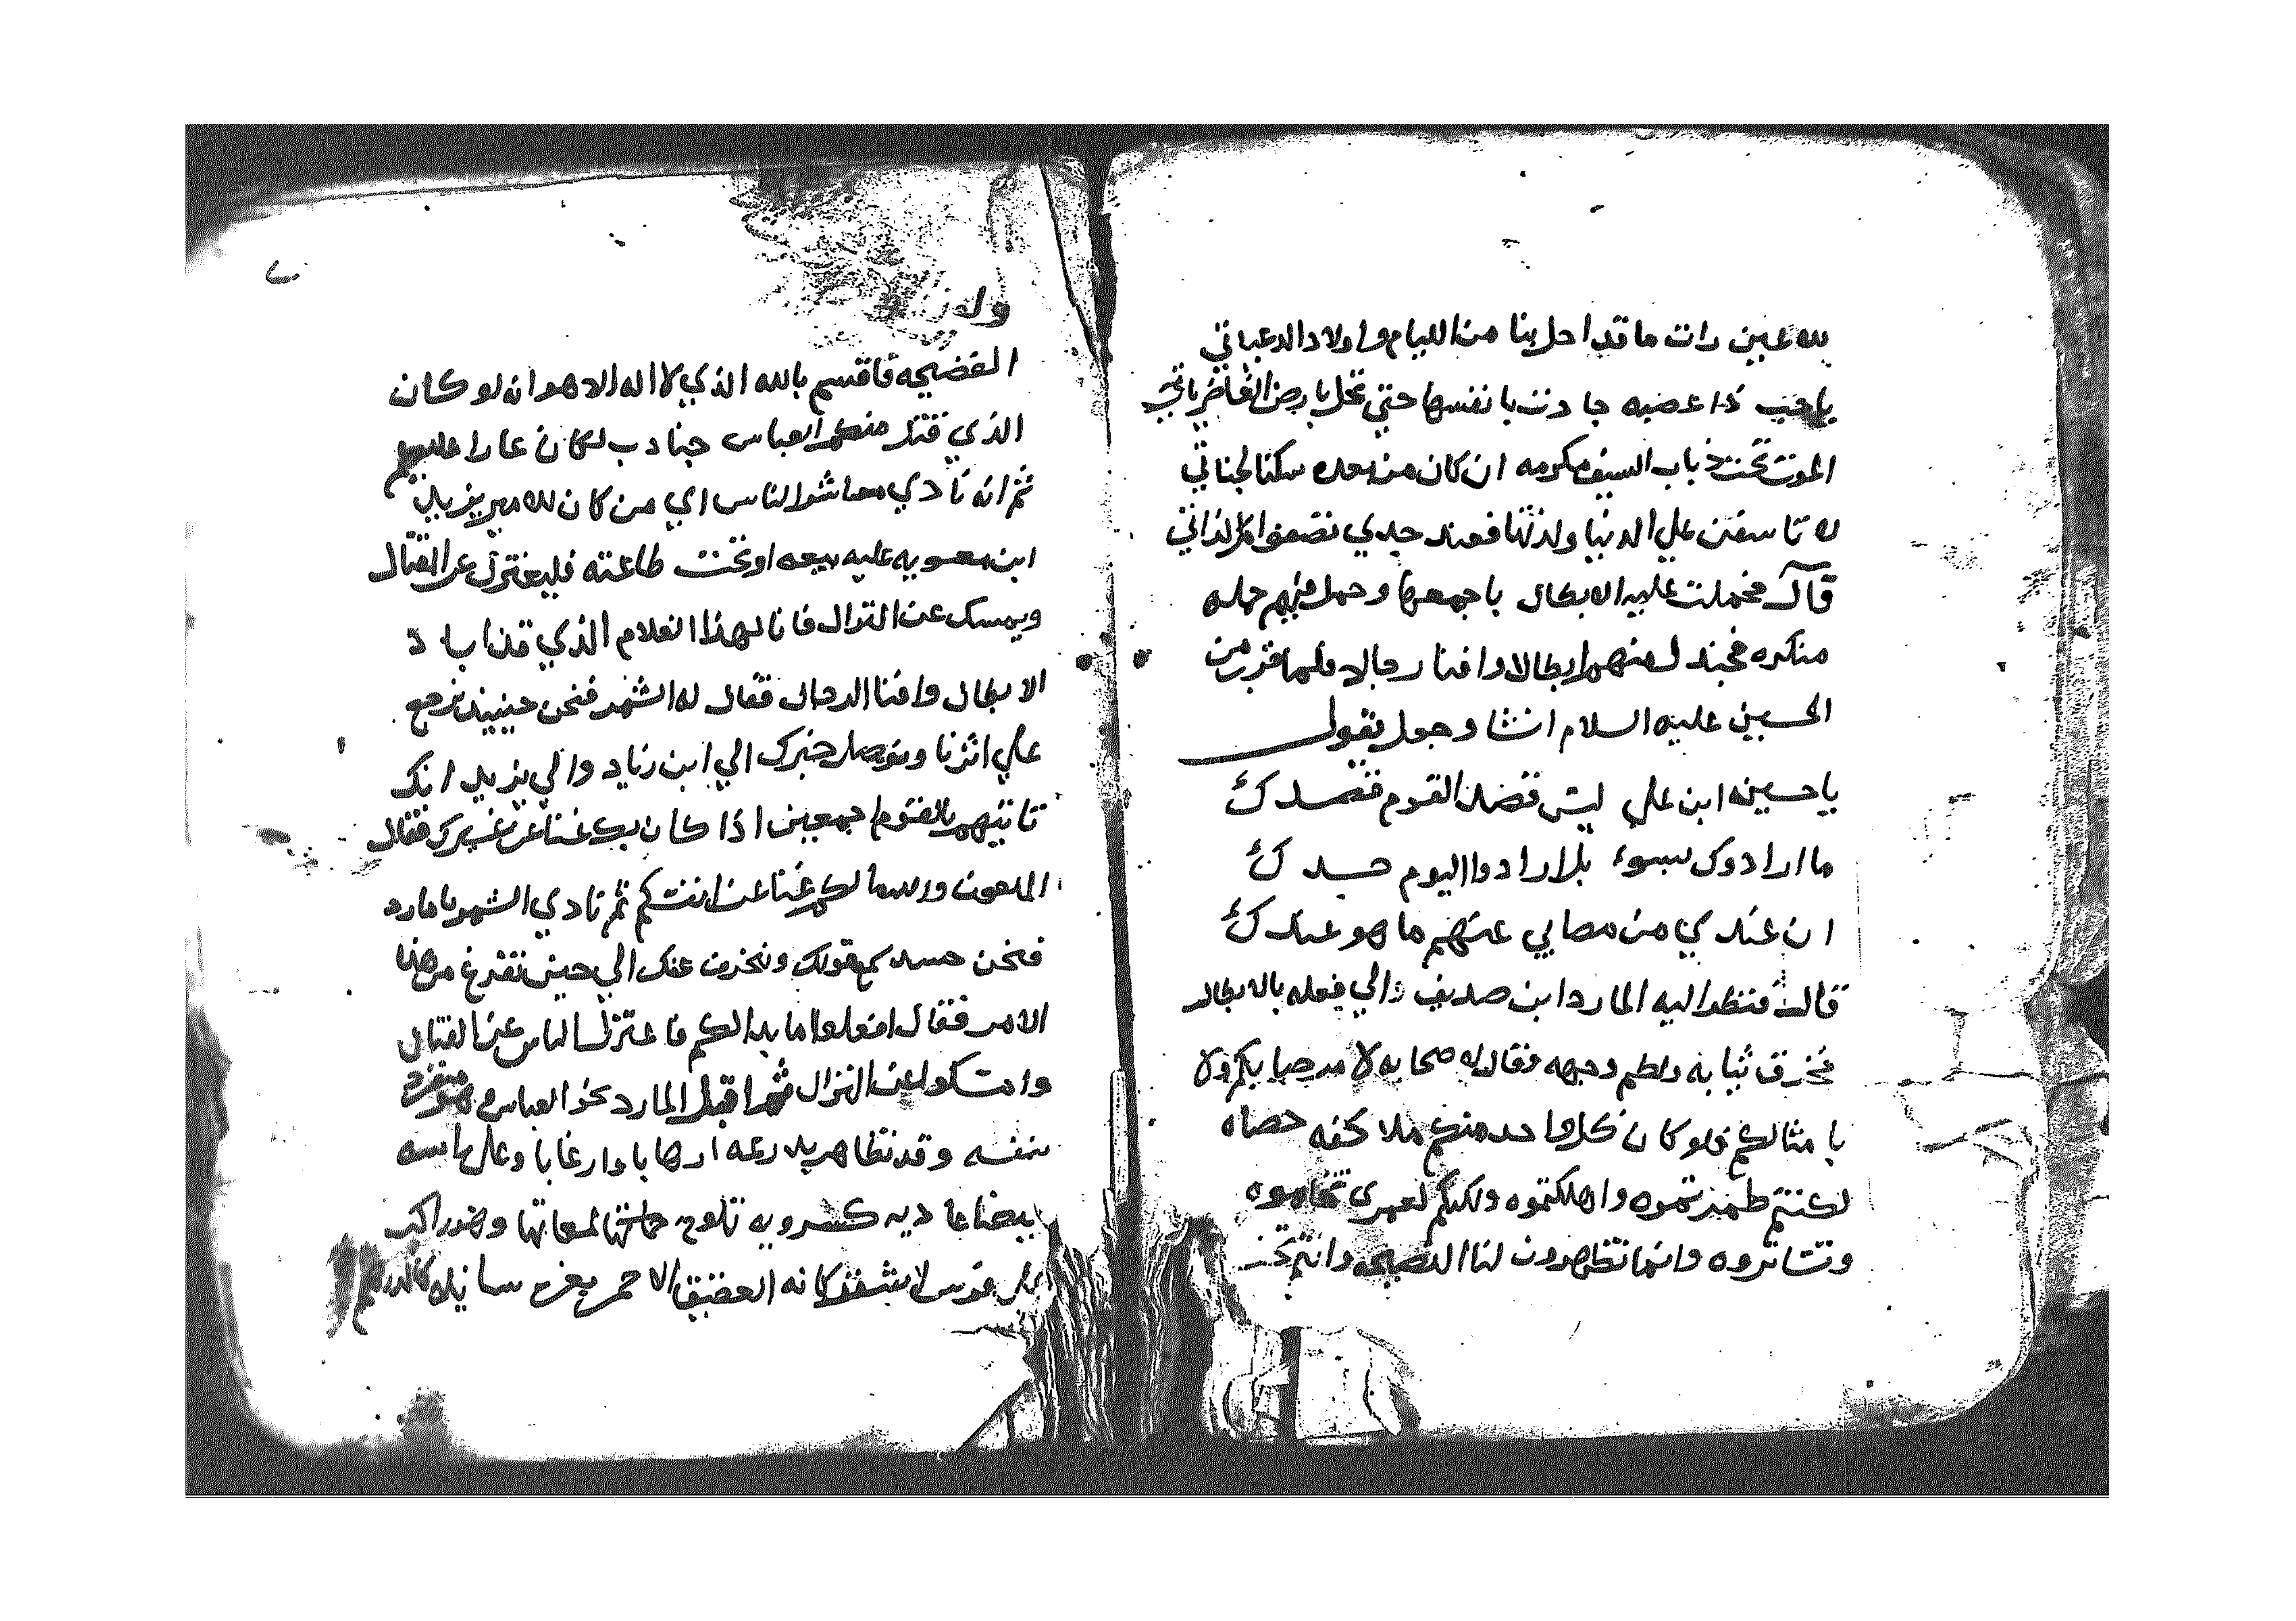 لله عين رات ما قد احل بنا من الليام واولاد الدعياتي
يا حبب ذا عصبه جادت بانفسها حتي تحل بارض الغاضرياتي
الموت تحت ذباب السيف مكرمه ان كان من بعده سكنا لجناتي
لا تاسفن علي الدنيا ولذتها فعند جدي تضعفوا لذاتي
قال فحملت عليه الابطال باجمعها وحمل فيهم حمله
منكره فجندل منهم ابطالا وافنا رجالا فلما قرب من
الحسين عليه السلام انشا وجعل يقول
يا حسين ابن علي ليس قصد القوم قصدك
ما ارادوك بسوء بلا رادوا اليوم حدك
ان عندي من مصابي عنهم ما هو عندك
قال فنظر اليه المارد ابن صديف والي فعله بالابطال
فخرق ثيابه ولطم وجهه فقال لاصحابه لا مرحبا بكم ولا
بامثالكم فلو كان كل واحد منكم ملا كفه حصاه
لكنتم طمرتموه واهلكتموه ولكنكم لعمري تحاموه
وتشاتروه وانما تظهرون لنا النصيحه وانتم تحت
الفضيحه فاقسم بالله الذي لا اله الا هو انه لو كان
الذي قتل منكم العباس جنادب لكان عارا عليكم
ثم انه نادي معاشر الناس اي من كان للامير يزيد
ابن معويه عليه بيعه او تحت طاعته فليعتزل عن القتال
ويمسك عن النزال فانا لهذا الغلام الذي قد اباد
الابطال وافنا الرجال فقال له الشمر فنحن حينيذ نرجع
علي اثرنا ونوصل خبرك الي ابن زياد والي يزيد انك
تاتيهم بالقوم اجمعين اذا كان بك غنا عن غيرك فقال
الملعون والله ما لكم غنا عن انتم ثم نادي الشمر يا مارد
فنحن نسمع قولك وننحرف عنك الي حين تفرغ من هذا
الامر فقال افعلوا ما بدا لكم فاعتزل الناس عن القتال
وامتكوا عن النزال ثم اقبل المارد نحو العباس وهو منفرد
بنفسه وقد تظاهر بدرعه ارهابا وارغابا وعلي راسه
بيضا عاديه كسرويه تلوح حافتها لمعانها وهو راكب
علي فرس لا يشقر كانه العقيق الاحمر